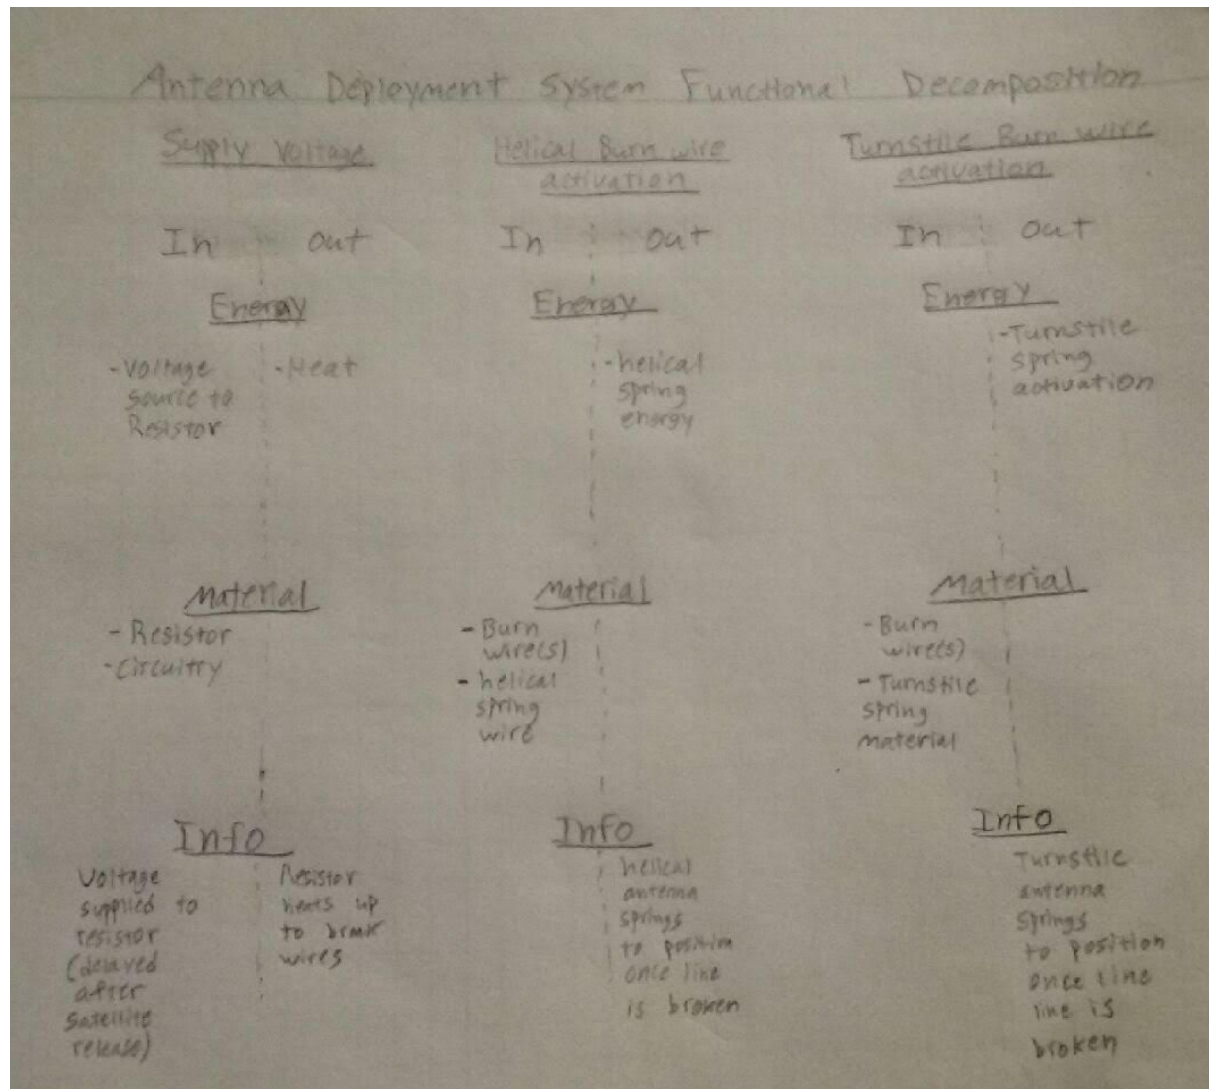 Antenna Deployment System Functional Decomposition
Supply Voltage
In out
Energy
-Voltage
source to
Resistor
-Heat
Material
-Resistor
-Circuitry
Info
Voltage
supplied to
resistor
(delayed
after
satellite
release)
Resistor
heats up
to break
wires
Helical Burn wire
activation
In out
Energy
-helical
spring
energy
Material
-Burn
wire(s)
-helical
spring
wire
Info
helical
antenna
springs
to position
once line
is broken
Turnstile Burn wire
activation
In out
Energy
-Turnstile
spring
activation
Material
-Burn
wire(s)
-Turnstile
spring
material
Info
Turnstile
antenna
springs
to position
once line
line is
broken